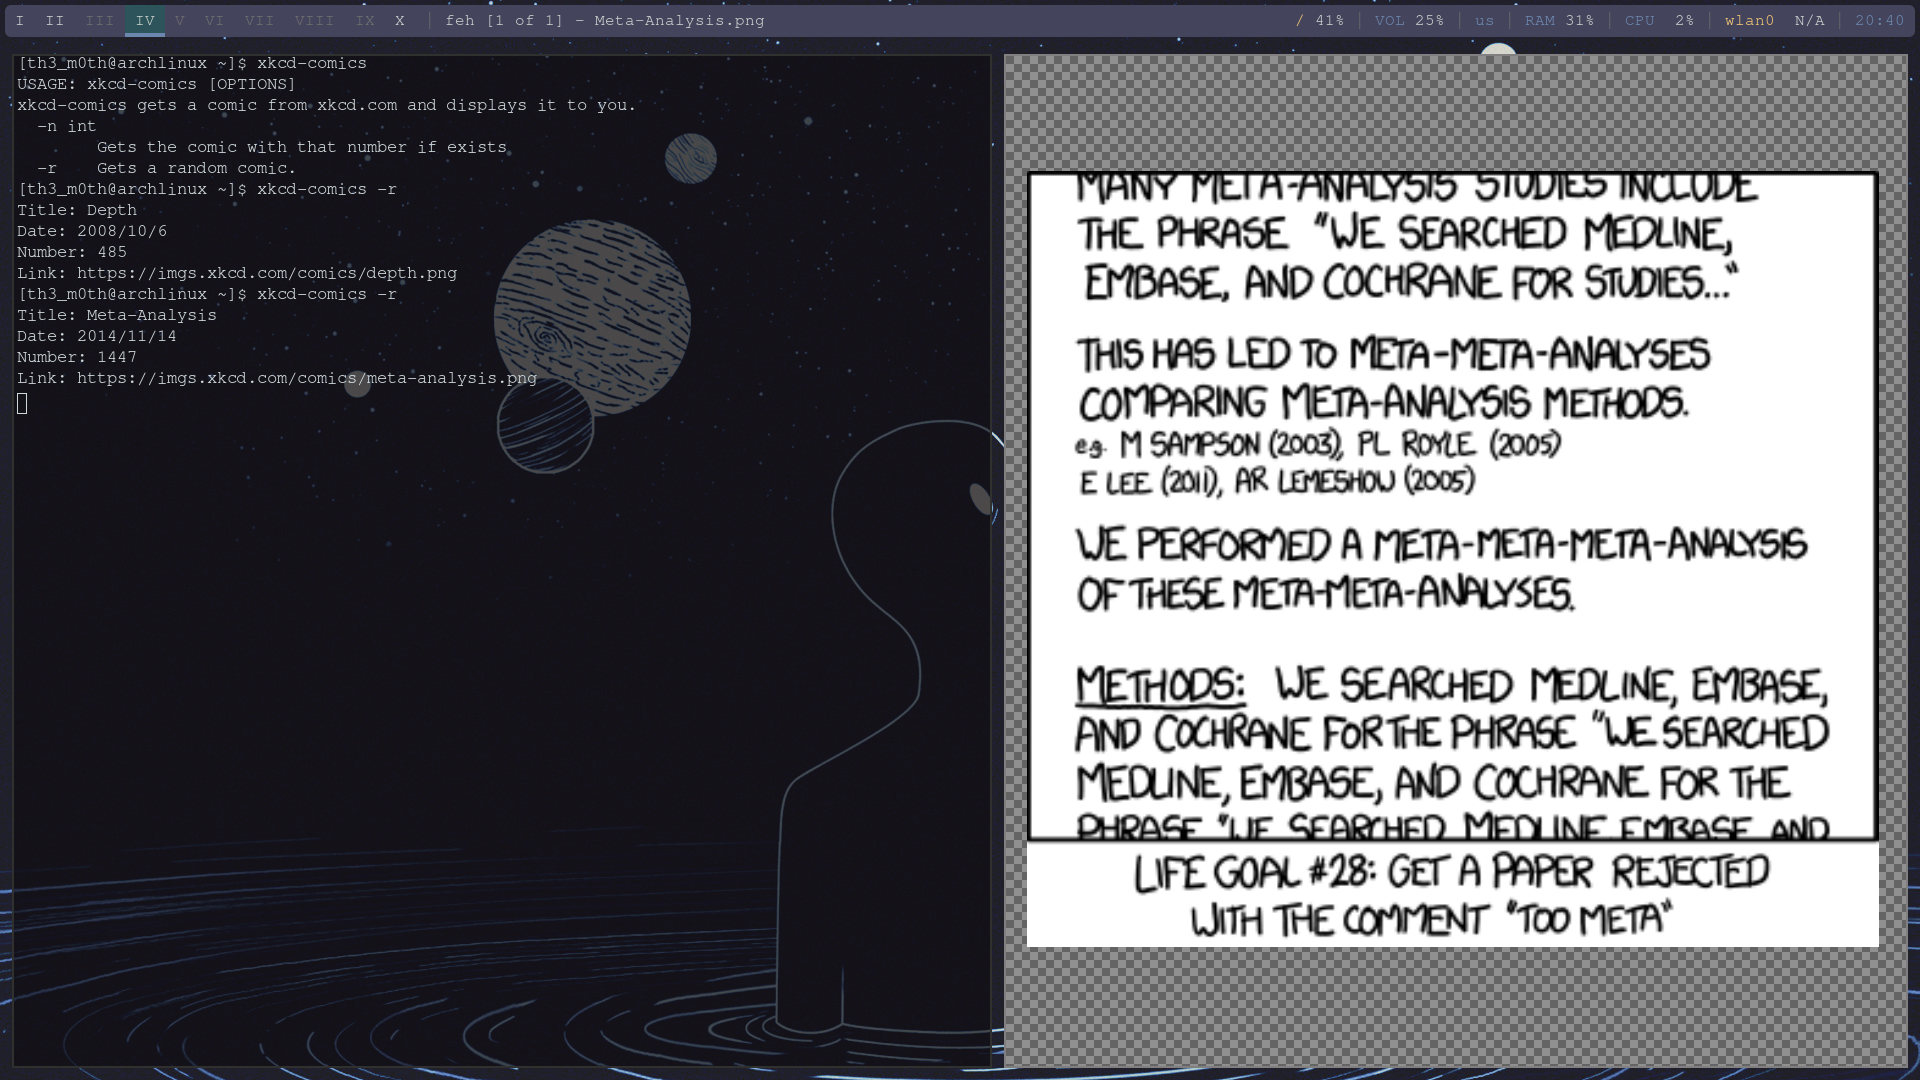 I II III IV V VI VII VIII IX X | feh [1 of 1] - Meta-Analysis.png / 41% | VOL 25% | us | RAM 31% | CPU 2% | wlan0 N/A | 20:40
[th3_m0th@archlinux ~]$ xkcd-comics
USAGE: xkcd-comics [OPTIONS]
xkcd-comics gets a comic from xkcd.com and displays it to you.
-n int
Gets the comic with that number if exists
-r Gets a random comic.
[th3_m0th@archlinux ~]$ xkcd-comics -r
Title: Depth
Date: 2008/10/6
Number: 485
Link: https://imgs.xkcd.com/comics/depth.png
[th3_m0th@archlinux ~]$ xkcd-comics -r
Title: Meta-Analysis
Date: 2014/11/14
Number: 1447
Link: https://imgs.xkcd.com/comics/meta-analysis.png
MANY META-ANALYSIS STUDIES INCLUDE
THE PHRASE "WE SEARCHED MEDLINE,
EMBASE, AND COCHRANE FOR STUDIES..."
THIS HAS LED TO META-META-ANALYSES
COMPARING META-ANALYSIS METHODS.
e.g. M SAMPSON (2003), PL ROYLE (2005)
E LEE (2011), AR LEMESHOW (2005)
WE PERFORMED A META-META-META-ANALYSIS
OF THESE META-META-ANALYSES.
METHODS: WE SEARCHED MEDLINE, EMBASE,
AND COCHRANE FOR THE PHRASE "WE SEARCHED
MEDLINE, EMBASE, AND COCHRANE FOR THE
PHRASE "WE SEARCHED MEDLINE EMBASE AND
LIFE GOAL #28: GET A PAPER REJECTED
WITH THE COMMENT "TOO META"